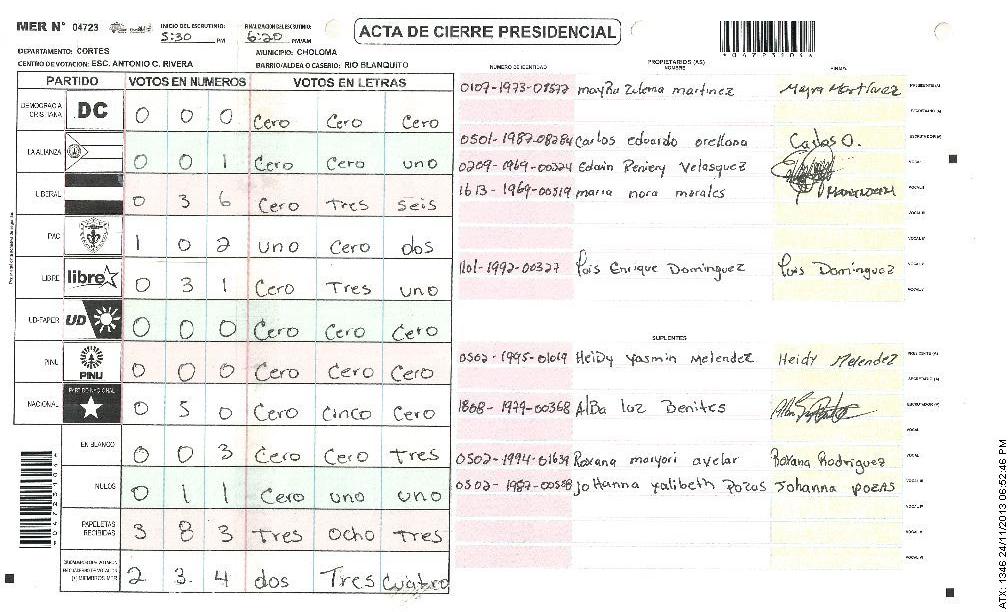 MER N° 04723
INICIO DEL ESCRUTINIO: 5:30 PM
FINALIZACION DEL ESCRUTINIO: 6:20 PM/AM
ACTA DE CIERRE PRESIDENCIAL
DEPARTAMENTO: CORTES
MUNICIPIO: CHOLOMA
CENTRO DE VOTACION: ESC. ANTONIO C. RIVERA
BARRIO/ALDEA O CASERIO: RIO BLANQUITO
PARTIDO VOTOS EN NUMEROS VOTOS EN LETRAS
DEMOCRACIA CRISTIANA DC 0 0 0 Cero Cero Cero
LA ALIANZA 0 0 1 Cero Cero uno
LIBERAL 0 3 6 Cero Tres seis
PAC 1 0 2 uno Cero dos
LIBRE libre 0 3 1 Cero Tres uno
UD-FAPER UD 0 0 0 Cero Cero Cero
PINU PINU 0 0 0 Cero Cero Cero
NACIONAL PARTIDO NACIONAL 0 5 0 Cero Cinco Cero
EN BLANCO 0 0 3 Cero Cero Tres
NULOS 0 1 1 Cero uno uno
PAPELETAS RECIBIDAS 3 8 3 Tres Ocho Tres
(+) MIEMBROS MER 2 3. 4 dos Tres Cuatro
NUMERO DE IDENTIDAD
PROPIETARIOS (AS)
NOMBRE
FIRMA
0107-1973-01577 mayra zulema martinez Mayra Martinez PRESIDENTE (A)
SECRETARIO (A)
0501-1987-08284 Carlos eduardo orellana Carlos O. ESCRUTADOR (A)
0209-1969-00324 Edwin Reniery Velasquez VOCAL I
1613-1969-00519 maria nora morales VOCAL II
VOCAL III
VOCAL IV
1101-1992-00327 Luis Enrique Dominguez Luis Dominguez VOCAL V
VOCAL VI
SUPLENTES
0502-1995-01019 Heidy Yasmin Melendez Heidy Melendez PRESIDENTE (A)
SECRETARIO (A)
1808-1979-00368 Alba luz Benites ESCRUTADOR (A)
VOCAL I
0502-1994-01639 Roxana maryori avelar Roxana Rodriguez VOCAL II
0502-1987-00558 Johanna yalibeth Pozas Johanna pozas VOCAL III
VOCAL IV
VOCAL V
VOCAL VI
ATX: 1346 24/11/2013 06:52:46 PM